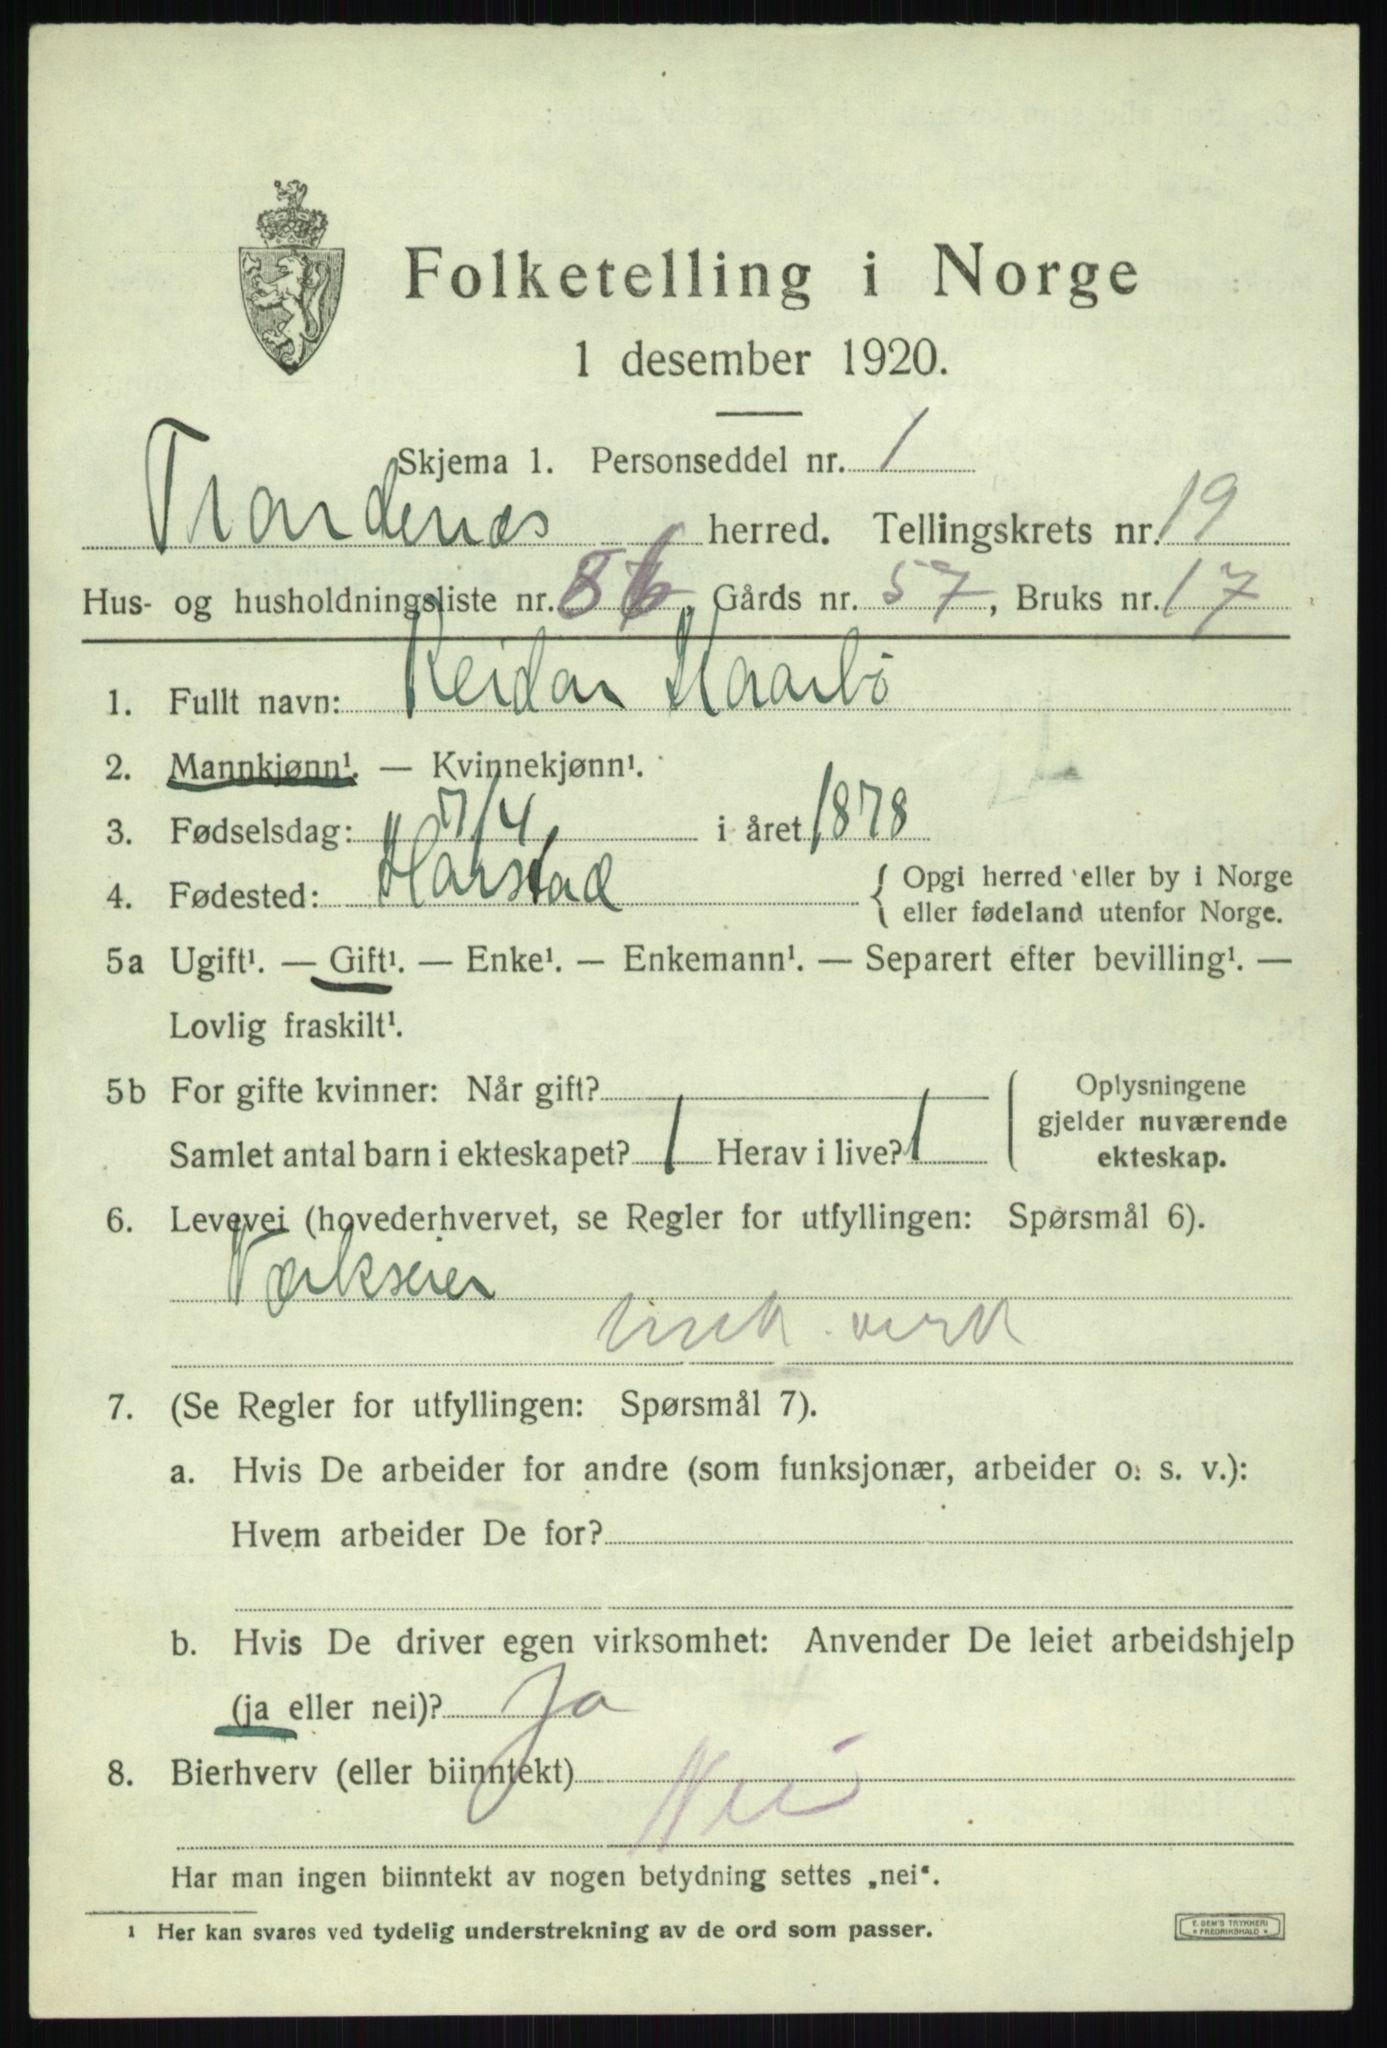 Folketelling i Norge
1 desember 1920.
Skjema 1. Personseddel nr. 1
Trondenes herred. Tellingskrets nr. 19
Hus- og husholdningsliste nr. 86, Gårds nr. 57, Bruks nr. 17
1. Fullt navn: Reidar Kaarbø
2. Mannkjønn¹. — Kvinnekjønn¹.
3. Fødselsdag: 7/4 i året 1878
4. Fødested: Harstad { Opgi herred eller by i Norge
eller fødeland utenfor Norge.
5a Ugift¹. — Gift¹. — Enke¹. — Enkemann¹. — Separert efter bevilling¹. —
Lovlig fraskilt¹.
5b For gifte kvinner: Når gift?
Samlet antal barn i ekteskapet? 1 Herav i live? 1
Oplysningene
gjelder nuværende
ekteskap.
6. Levevei (hovederhvervet, se Regler for utfyllingen: Spørsmål 6).
Værkseier
mek. verk
7. (Se Regler for utfyllingen: Spørsmål 7).
a. Hvis De arbeider for andre (som funksjonær, arbeider o. s. v.):
Hvem arbeider De for?
b. Hvis De driver egen virksomhet: Anvender De leiet arbeidshjelp
(ja eller nei)? Ja
8. Bierhverv (eller biinntekt) Nei
Har man ingen biinntekt av nogen betydning settes „nei“.
¹ Her kan svares ved tydelig understrekning av de ord som passer.
E. SEM'S TRYKKERI
* FREDRIKSHALD *